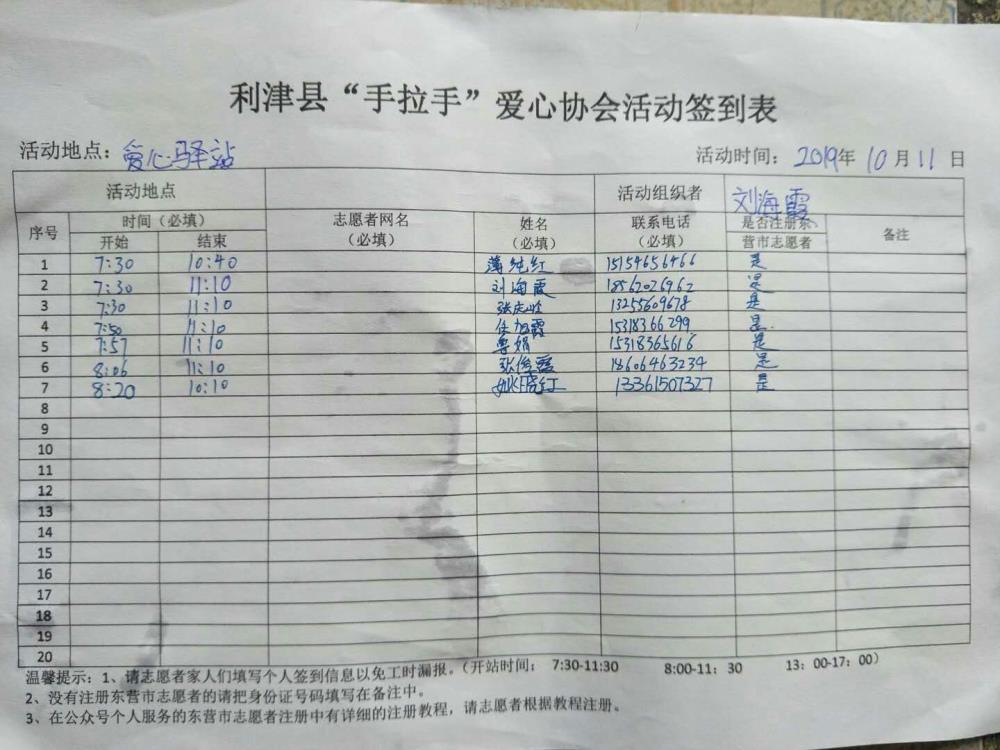 利津县“手拉手”爱心协会活动签到表
活动地点：爱心驿站 活动时间：2019年10月11日
活动地点 活动组织者 刘海霞
序号 时间（必填） 志愿者网名（必填） 姓名（必填） 联系电话（必填） 是否注册东、营市志愿者 备注
开始 结束
1 7:30 10:40 薄纯红 15154656466 是
2 7:30 11:10 刘海霞 18562026962 是
3 7:30 11:10 13255609678 是
4 7:50 11:10 15318366299 是
5 7:57 11:10 15318365616 是
6 8:06 11:10 张俊霞 18606463234 是
7 8:20 10:10 姚晓红 13361507327 是
8
9
10
11
12
13
14
15
16
17
18
19
20
温馨提示：1、请志愿者家人们填写个人签到信息以免工时漏报。（开站时间： 7:30-11:30 8:00-11：30 13：00-17：00）
2、没有注册东营市志愿者的请把身份证号码填写在备注中。
3、在公众号个人服务的东营市志愿者注册中有详细的注册教程，请志愿者根据教程注册。